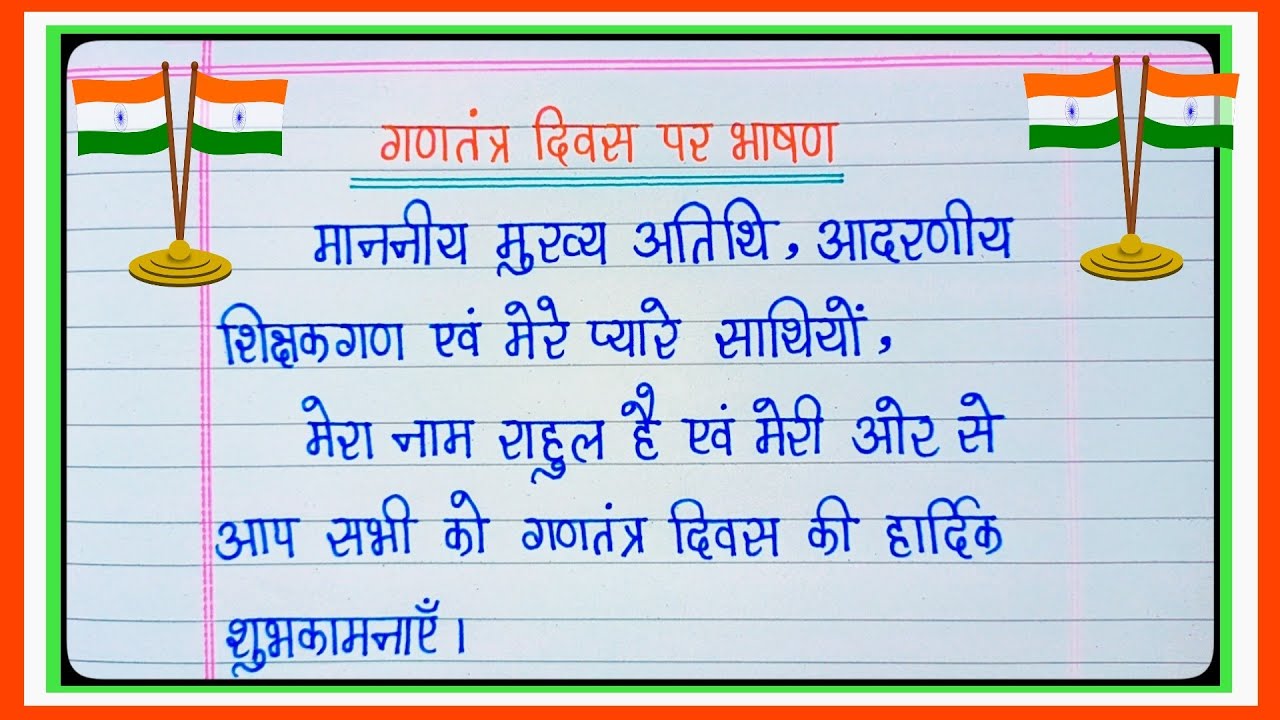 गणतंत्र दिवस पर भाषण
माननीय मुख्य अतिथि, आदरणीय
शिक्षकगण एवं मेरे प्यारे साथियों,
मेरा नाम राहुल है एवं मेरी ओर से
आप सभी को गणतंत्र दिवस की हार्दिक
शुभकामनाएँ।